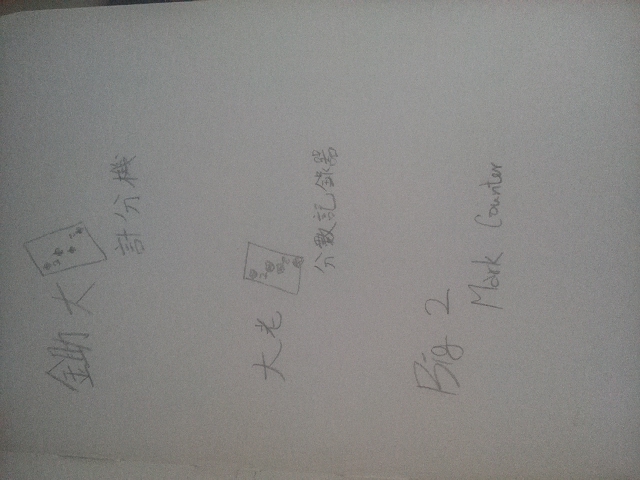 鋤大
計分機
大老
分數記錄器
Big 2
Mark Counter